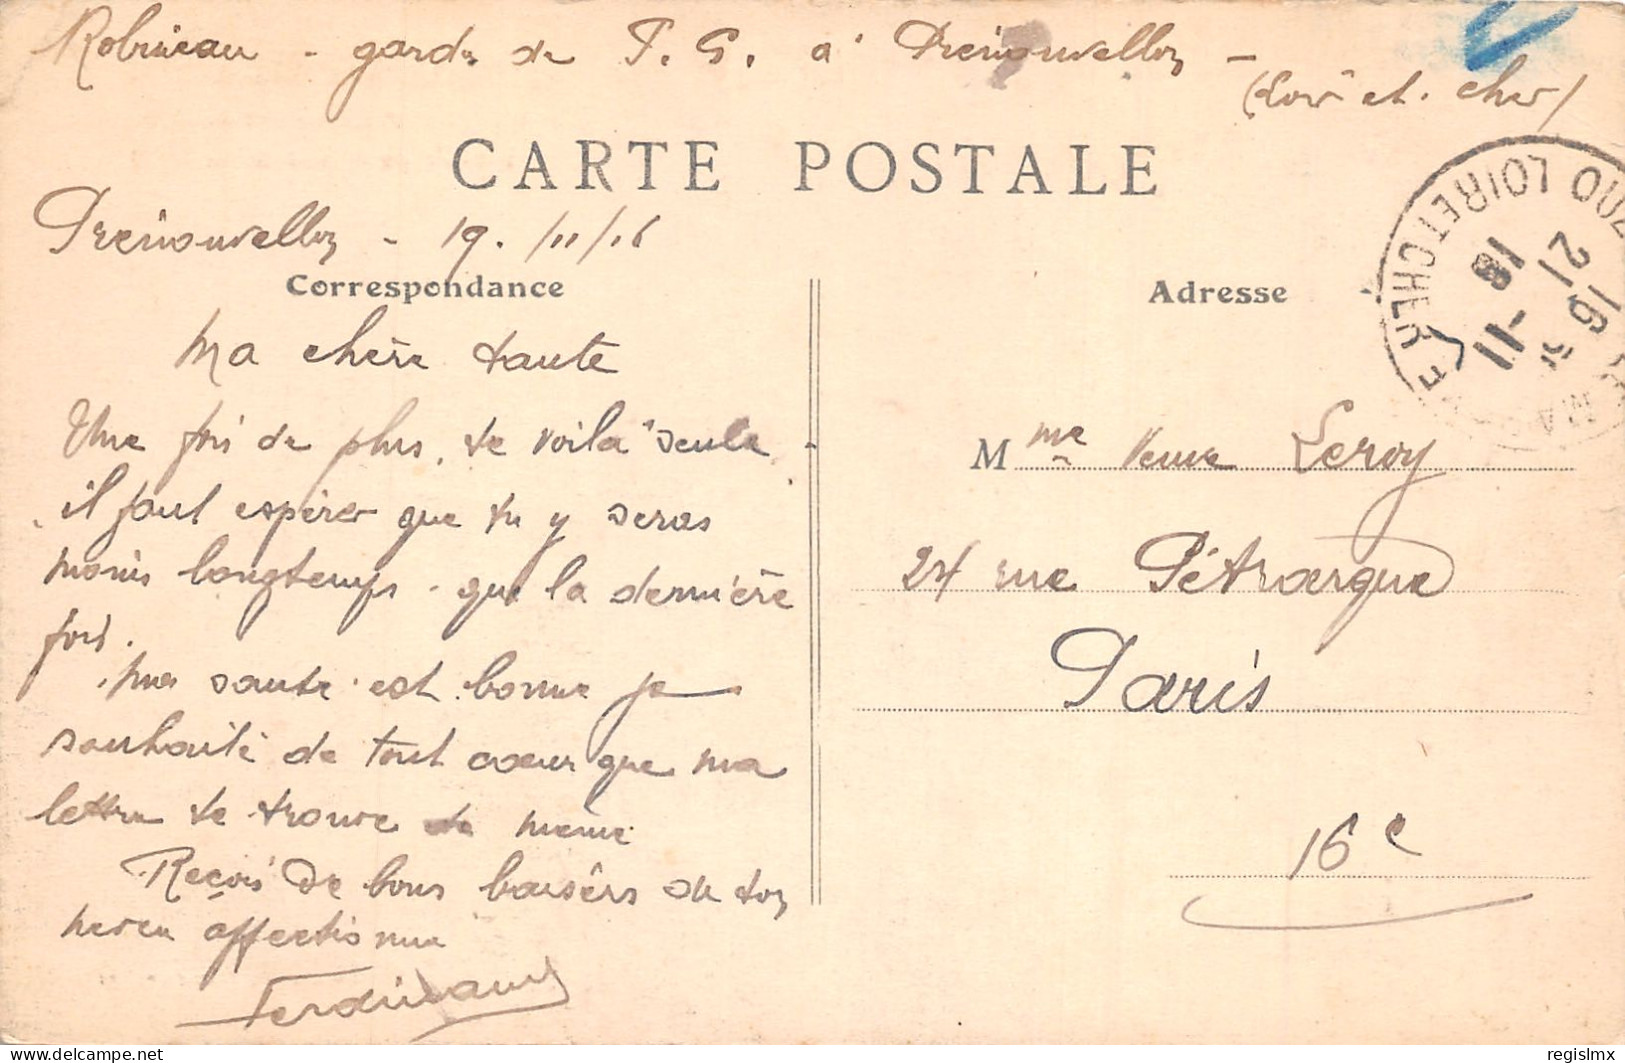 Robineau - garde de P. G. à Prénouvellon -
(Loir et. cher)
CARTE POSTALE
Prénouvellon - 19. /11/16
Correspondance
Ma chère tante
Une fois de plus, te voilà seule -
il faut espérer que tu y seras
moins longtemps - que la dernière
fois.
Ma santé est bonne je
souhaite de tout cœur que ma
lettre te trouve de même
Reçois de bons baisers de ton
neveu affectionné
Ferdinand
Adresse
M me Veuve Leroy
24 rue Pétrarque
Paris
16e
LOIR ET CHER
18
21 -11
16
regislmx
www.delcampe.net